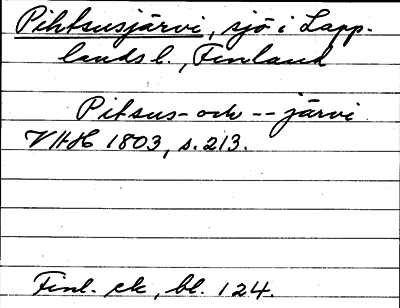 Pihtsusjärvi, sjö i Lapp-
lands l., Finland
Pitsus- och -- järvi
VHH 1803, s. 213.
Finl. ek, bl. 124.